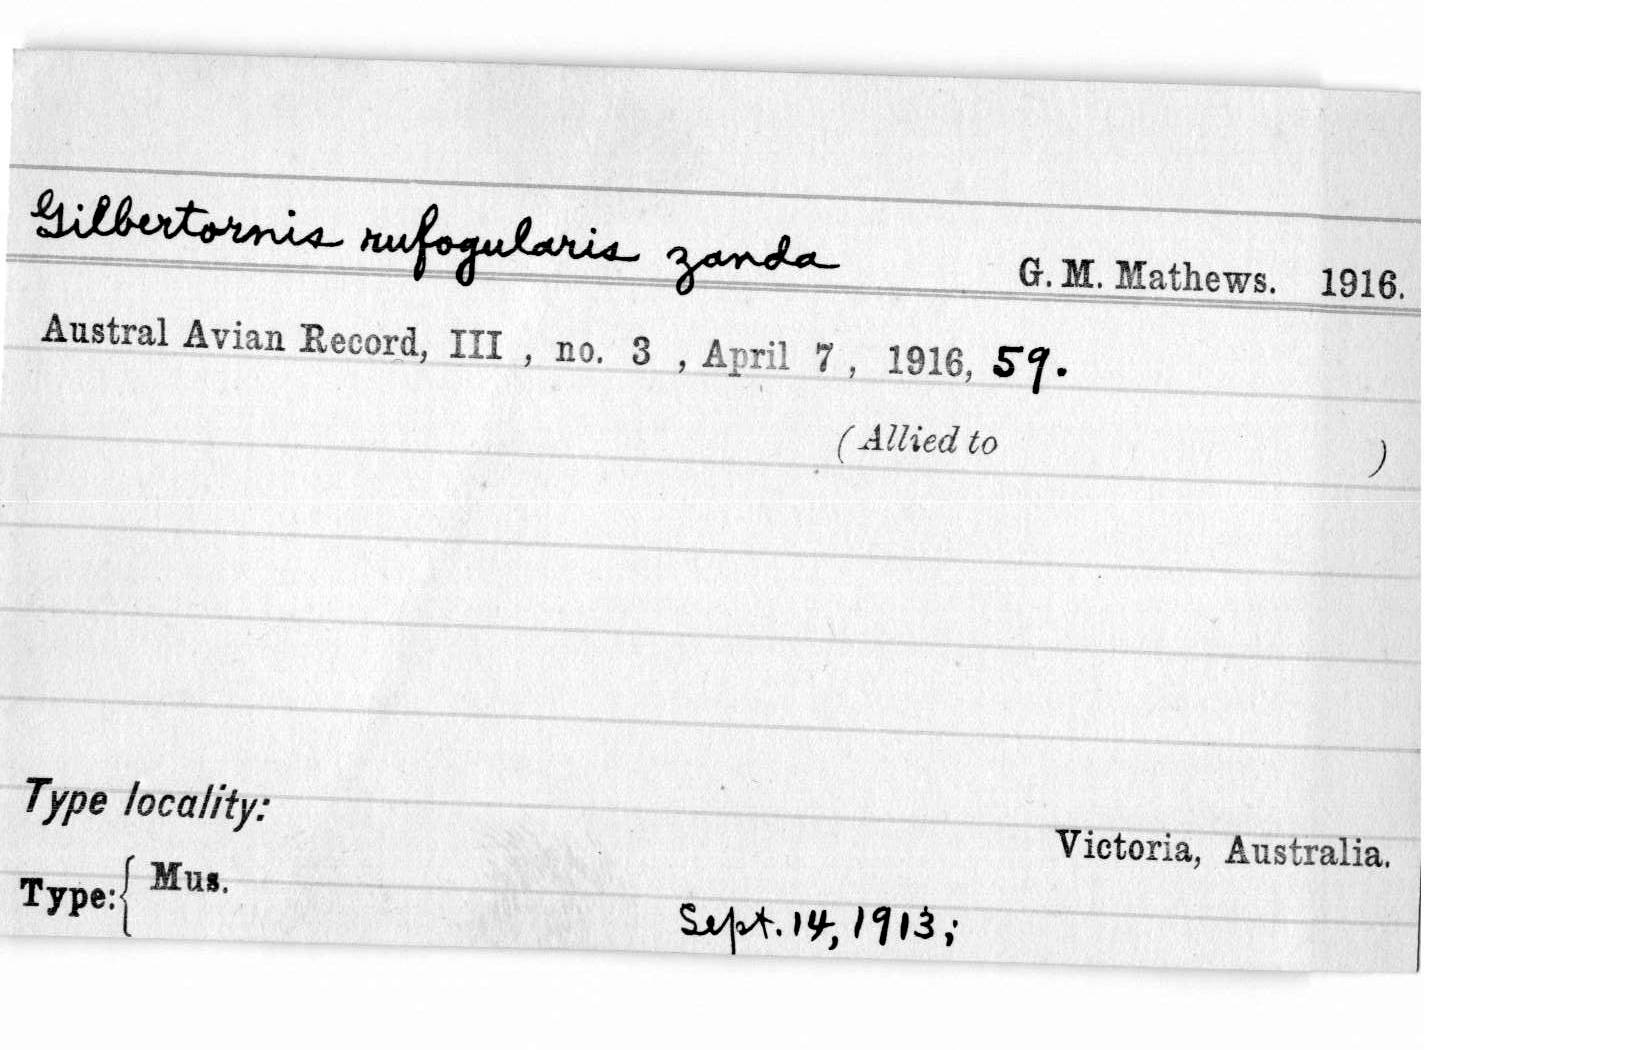 Gilbertornis rufogularis zanda G. M. Mathews. 1916.
Austral Avian Record, III , no. 3 , April 7 , 1916, 59.
(Allied to )
Type locality:
Victoria, Australia.
Type:{ Mus.
Sept. 14, 1913;